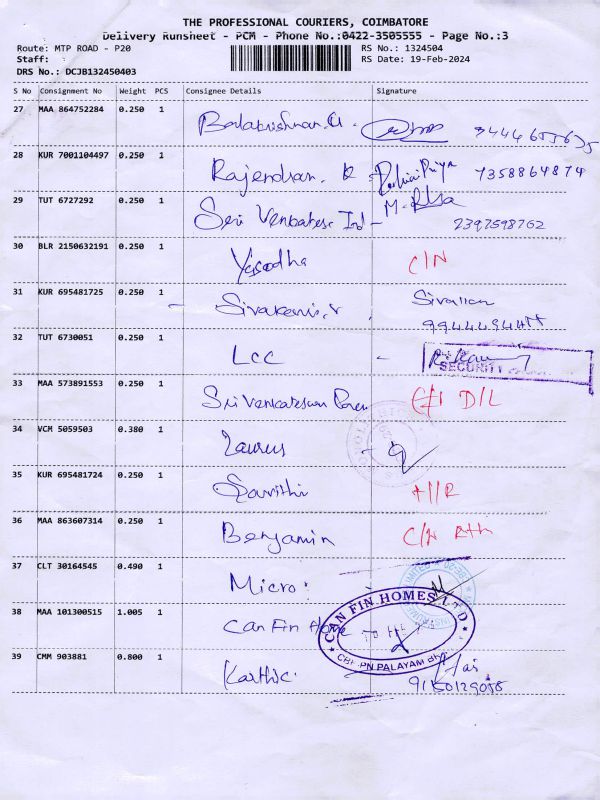 THE PROFESSIONAL COURIERS, COIMBATORE
Delivery Runsheet - PCM - Phone No.:0422-3505555 - Page No.:3
Route: MTP ROAD - P20 RS No.: 1324504
Staff: RS Date: 19-Feb-2024
DRS No.: DCJB132450403
S No Consignment No Weight PCS Consignee Details Signature
27 MAA 864752284 0.250 1 Balakrishnan.
28 KUR 7001104497 0.250 1 Rajendran. R 7358864874
29 TUT 6727292 0.250 1 Sri Venkatesa Ind - 2397598762
30 BLR 2150632191 0.250 1 Yasodha C/N
31 KUR 695481725 0.250 1
32 TUT 6730051 0.250 1 LCC - SECURITY
33 MAA 573891553 0.250 1 Sri Venkateswara D/L
34 VCM 5059503 0.380 1 Zaurus
35 KUR 695481724 0.250 1 Savithi
36 MAA 863607314 0.250 1 Benjamin C/N
37 CLT 30164545 0.490 1 Micro
38 MAA 101300515 1.005 1 Can Fin Home CAN FIN HOMES LTD
39 CMM 903881 0.800 1 Karthic.